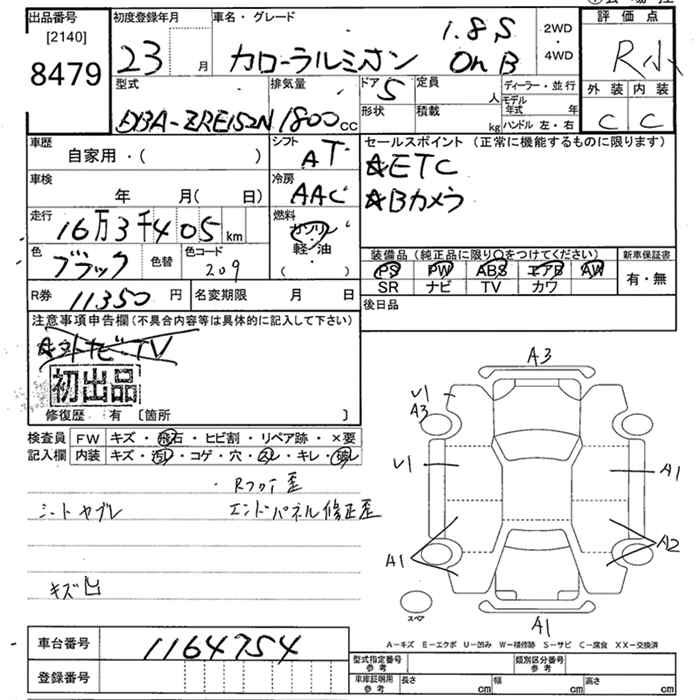 出品番号 初度登録年月 車名・グレード 2WD・4WD 評価点
[2140] 8479 23 月 カローラルミオン 1.8S On B R小
型式 排気量 ドア 5 定員 人 ディーラー・並行 外装 内装
DBA-ZRE152N 1800cc 形状 積載 kg モデル年式 年 ハンドル 左・右 C C
車歴 自家用・( ) シフト AT セールスポイント (正常に機能するものに限ります)
☆ETC
車検 年 月( 日) 冷房 AAC ☆Bカメラ
走行 16万3千405km 燃料 ガソリン 軽・油 ( )
色 ブラック 色替 色コード 209 装備品 (純正品に限り○をつけてください) 新車保証書
PS PW ABS エアB AW 有・無
SR ナビ TV カワ
R券 11350円 名変期限 月 日 後日品
注意事項申告欄(不具合内容等は具体的に記入して下さい)
ナビ TV
初出品
修復歴 有 〔箇所 〕
検査員 FW キズ・飛石・ヒビ割・リペア跡・×要
記入欄 内装 キズ・汚レ・コゲ・穴・凹・キレ・破レ
・Rフロア歪
シートヤブレ エンドパネル修正歪
キズ凹
A3
U1
A3
U1 A1
A1 A2
スペア
A1
A-キズ E-エクボ U-凹み W-補修跡 S-サビ C-腐食 XX-交換済
車台番号 1164754 型式指定番号 参考 類別区分番号 参考
登録番号 車庫証明用 参考 長さ cm 幅 cm 高さ cm